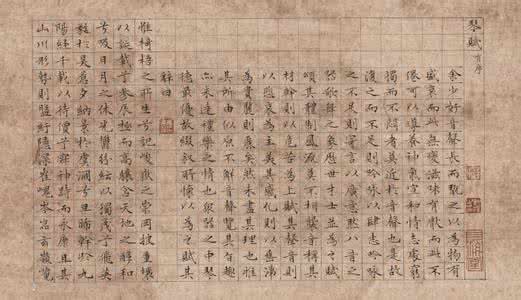 琴賦 有序
余少好音聲長而翫之以為物有
盛衰而此無變滋味有猒而此不
倦可以導養神氣宣和情志處窮
獨而不悶者莫近於音聲也是故
復之而不足則吟咏以肆志吟咏
之不足則寄言以廣意然八音之
器歌舞之象歷世才士並為之賦
頌其體制風流莫不相襲稱其
材幹則以危苦為上賦其聲音則
以悲哀為主美其感化則以垂涕
為貴麗則麗矣然未盡其理也推
其所由似原不解音聲覽其旨趣
亦未達禮樂之情也眾器之中琴
德最優故綴叙所懷以為之賦其
辭曰
惟椅梧之所生兮託峻嶽之崇岡披重壤
以誕載兮參辰極而高驤含天地之醇和
兮吸日月之休光鬱紛紜以獨茂兮飛英
蕤於昊蒼夕納景於虞淵兮旦晞幹於九
陽經千載以待價兮寂神跱而永康且其
山川形勢則盤紆隱深磪嵬岑嵓玄嶺